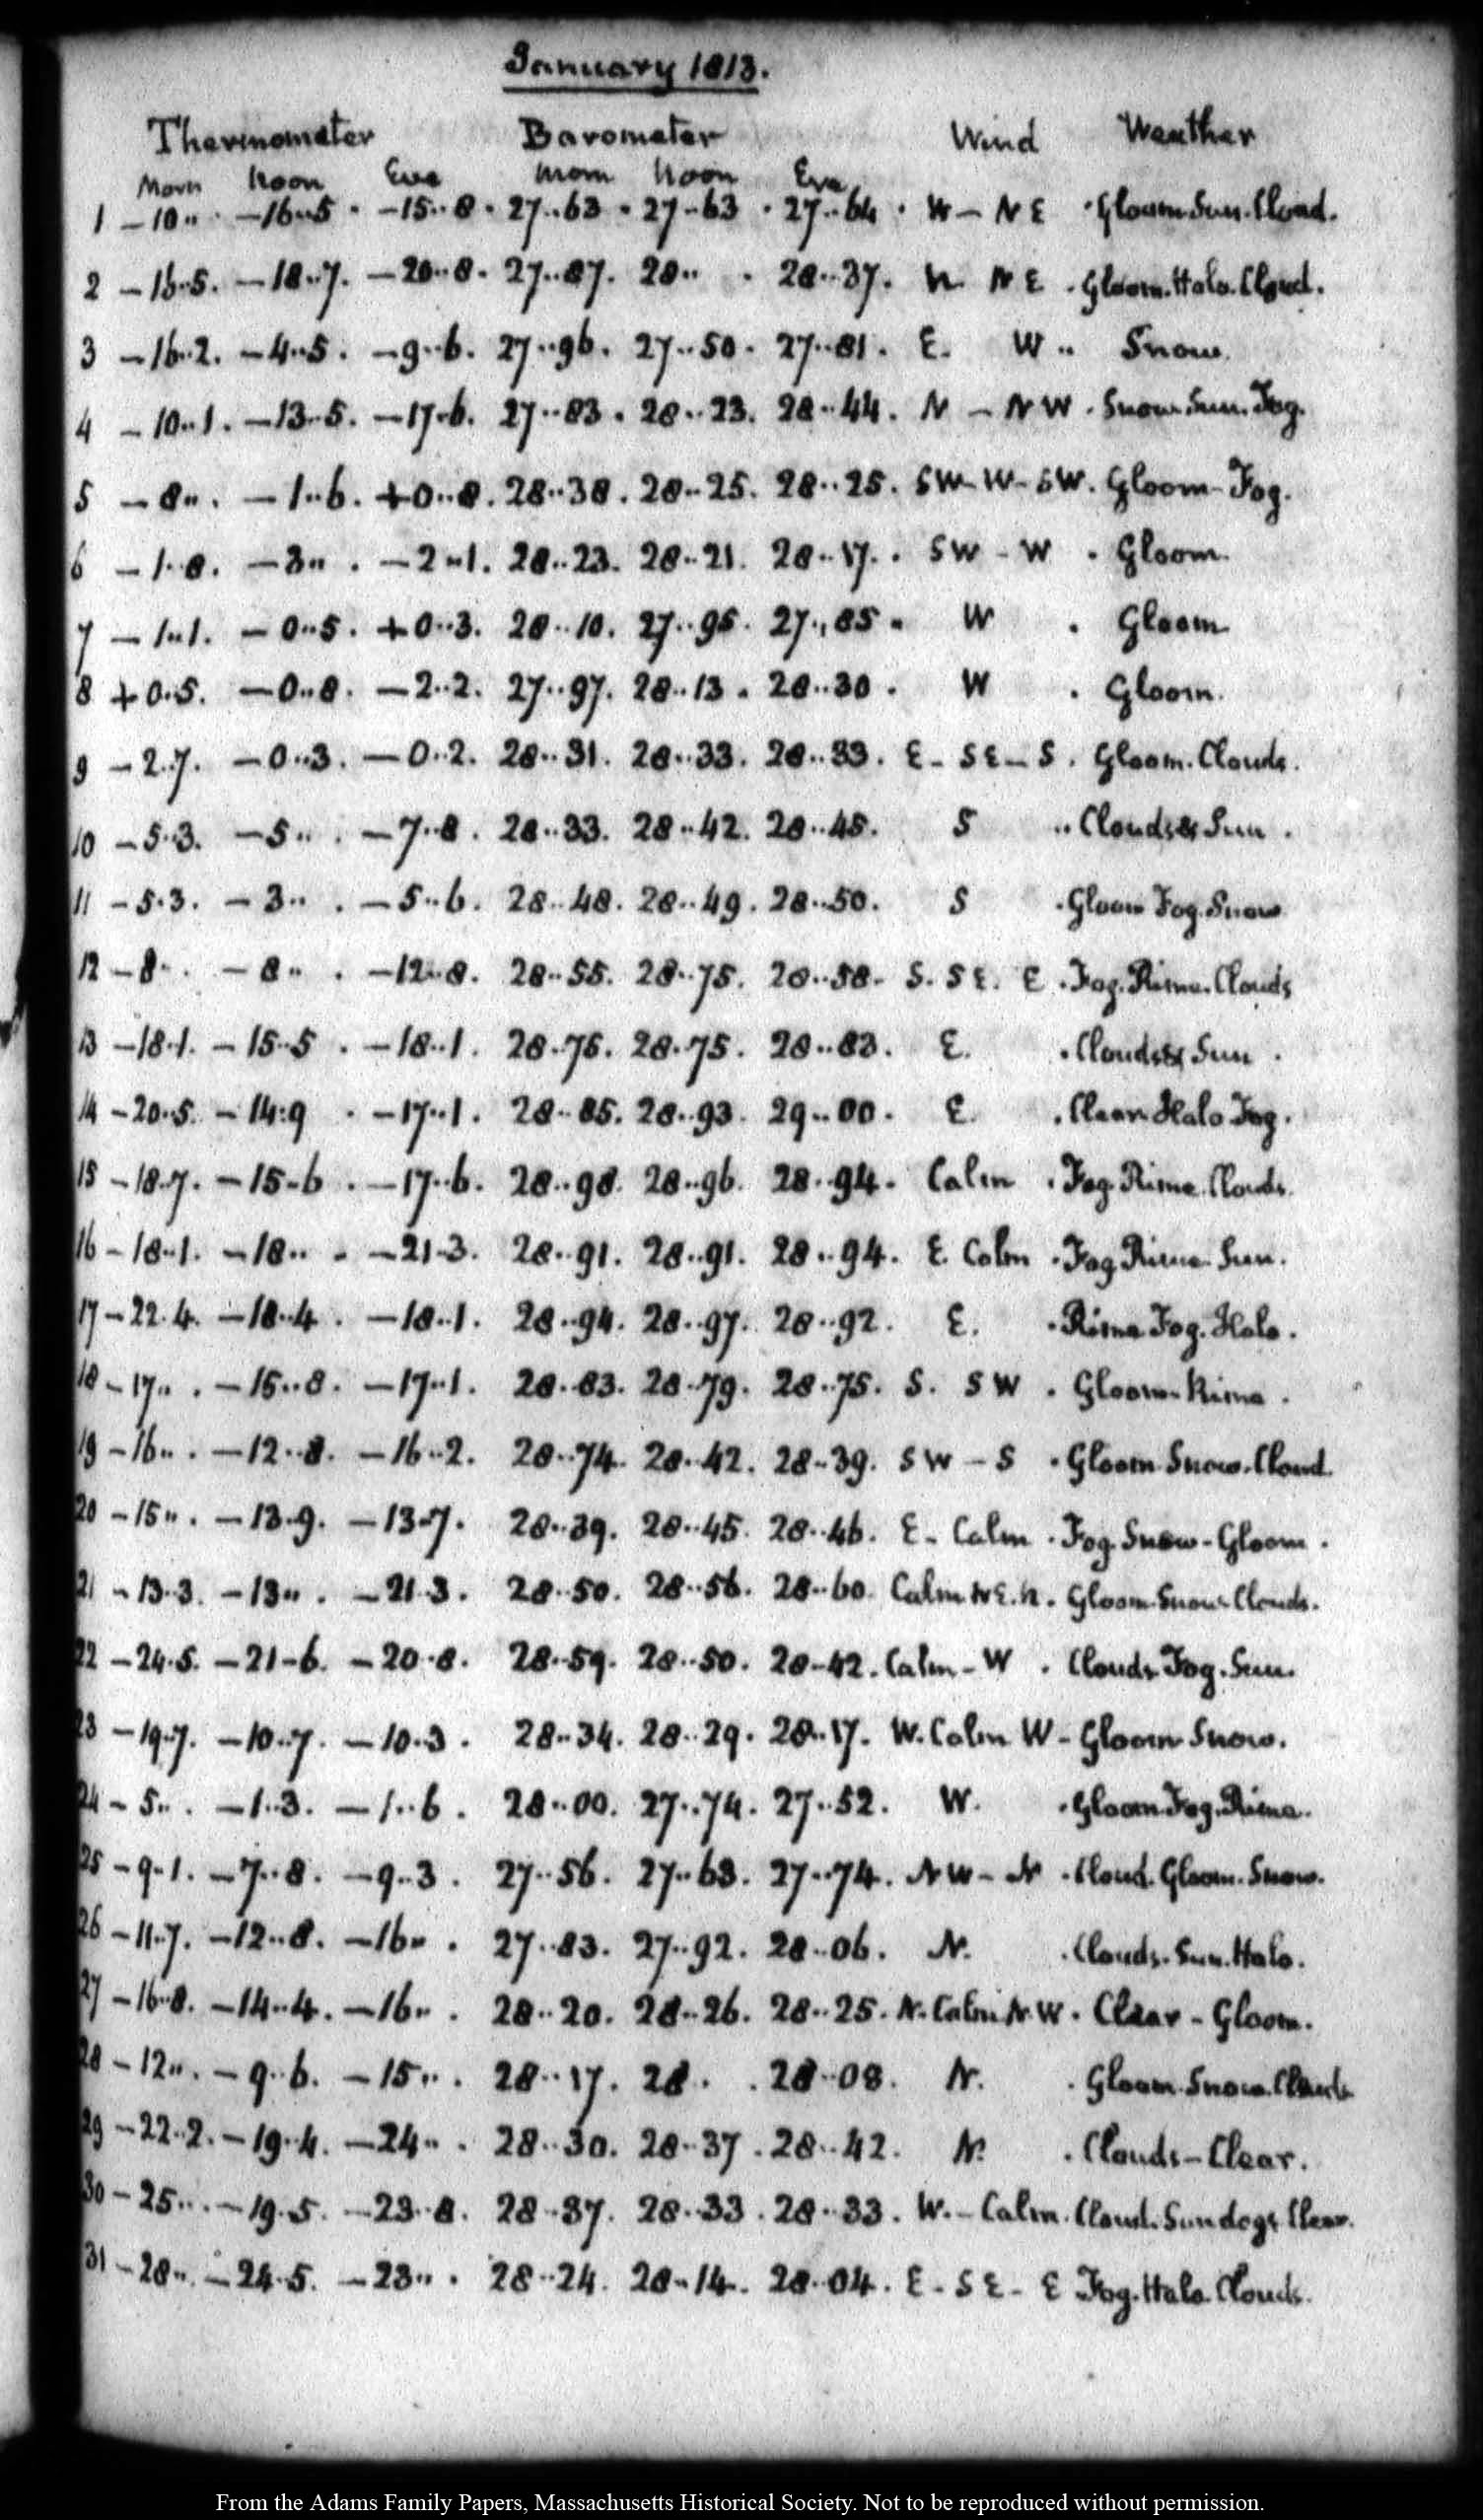 January 1813.
Thermometer Barometer Wind Weather
Morn Noon Eve Morn Noon Eve
1 -10.. -16..5 . -15..8 . 27..63 . 27..63 . 27..64 . W - NE . Gloom Sun. Cloud.
2 -16..5. -18..7. -20..8. 27..87. 28.. . 28..37. N NE . Gloom. Halo. Cloud.
3 -16..2. -4..5. -9..6. 27..96. 27..50. 27..81. E. W .. Snow.
4 -10..1. -13..5. -17..6. 27..83. 28..23. 28..44. N - NW . Snow Sun. Fog.
5 -8.. . -1..6. +0..8. 28..38. 28..25. 28..25. SW-W-SW. Gloom-Fog.
6 -1..8. -3.. . -2..1. 28..23. 28..21. 28..17. . SW - W . Gloom.
7 -1..1. -0..5. +0..3. 28..10. 27..95. 27..85. W . Gloom
8 +0..5. -0..8. -2..2. 27..97. 28..13. 28..30. W . Gloom.
9 -2.7. -0..3. -0..2. 28..31. 28..33. 28..33. E - SE - S . Gloom. Clouds.
10 -5.3. -5.. . -7..8. 28..33. 28..42. 28..45. S .. Clouds & Sun .
11 -5.3. -3.. . -5..6. 28..48. 28..49. 28..50. S . Gloom Fog. Snow
12 -8.. . -8.. . -12..8. 28..55. 28..75. 28..58. S. SE. E . Fog. Rime. Clouds
13 -18.1. -15..5 . -18..1. 28..75. 28..75. 28..83. E. . Clouds & Sun .
14 -20..5. -14.9 . -17..1. 28..85. 28..93. 29..00. E. . Clear Halo Fog.
15 -18.7. -15-6 . -17..6. 28..98. 28..96. 28..94. Calm . Fog. Rime. Clouds.
16 -18..1. -18.. . -21.3. 28..91. 28..91. 28..94. E. Calm . Fog Rime Sun.
17 -22.4. -18..4. -18..1. 28..94. 28..97. 28..92. E. . Rime Fog. Halo.
18 -17.. . -15..8. -17..1. 28..83. 28..79. 28..75. S. SW . Gloom Rime .
19 -16.. . -12..8. -16..2. 28..74. 28..42. 28..39. SW - S . Gloom Snow. Cloud.
20 -15.. . -13.9. -13.7. 28..39. 28..45. 28..46. E - Calm . Fog. Snow - Gloom .
21 -13.3. -13.. . -21.3. 28..50. 28..56. 28..60. Calm NE. N. Gloom Snow Clouds.
22 -24.5. -21-6. -20.8. 28..59. 28..50. 28..42. Calm - W . Clouds Fog. Sun.
23 -19.7. -10..7. -10.3. 28..34. 28..29. 28..17. W. Calm W - Gloom Snow.
24 -5.. . -1..3. -1..6. 28..00. 27..74. 27..52. W. . Gloom Fog. Rime.
25 -9..1. -7..8. -9..3. 27..56. 27..63. 27..74. NW - N . Cloud. Gloom. Snow.
26 -11.7. -12..8. -16.. . 27..83. 27..92. 28..06. N. . Clouds. Sun. Halo.
27 -16.8. -14..4. -16.. . 28..20. 28..26. 28..25. N. Calm NW . Clear - Gloom.
28 -12.. . -9..6. -15.. . 28..17. 28. . 28..08. N. . Gloom. Snow. Clouds
29 -22..2. -19.4. -24.. . 28..30. 28..37. 28..42. N. . Clouds - Clear.
30 -25.. . -19.5. -23..8. 28..37. 28..33. 28..33. W. - Calm. Cloud. Sundogs Clear.
31 -28.. . -24.5. -23.. . 28..24. 28..14. 28..04. E - SE - E Fog. Halo. Clouds.
From the Adams Family Papers, Massachusetts Historical Society. Not to be reproduced without permission.